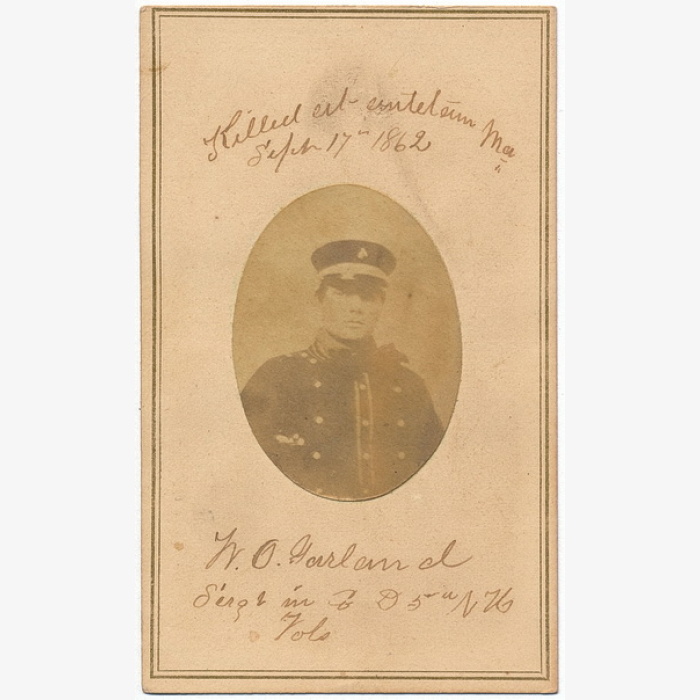 Killed at antetam Md
Sept 17th 1862
W. O. Garland
Sergt in Co D 5th N H
Vols